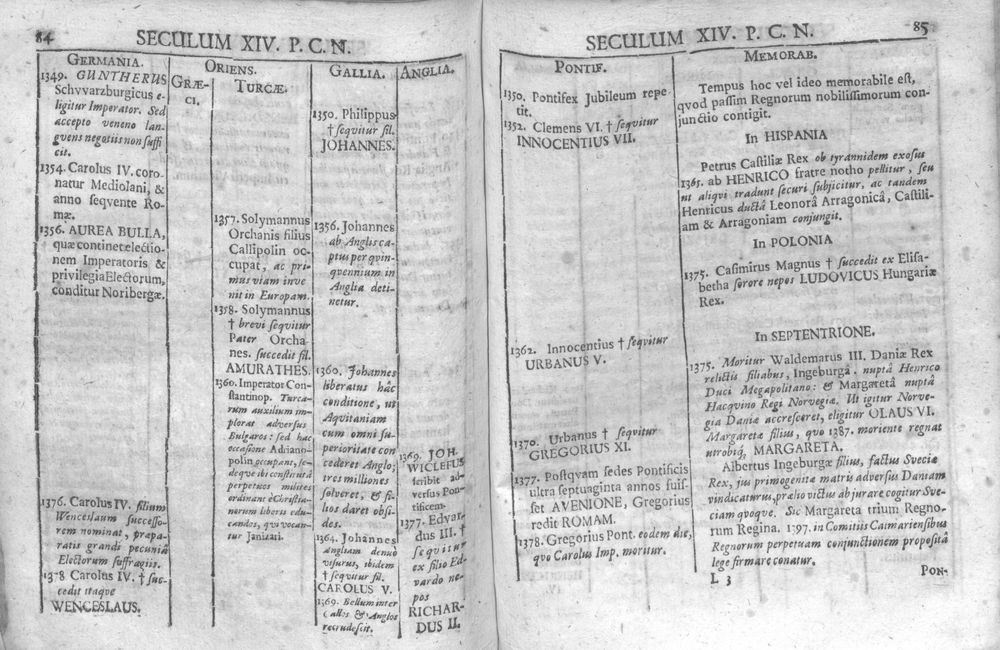 84
SECULUM XIV. P. C. N.
GERMANIA.
1349. GUNTHERUS
Schvvarzburgicus e-
ligitur Imperator. Sed
accepto veneno lan-
gvens negotiis non suffi
cit.
1354. Carolus IV. coro-
natur Mediolani, &
anno seqvente Ro-
mæ.
1356. AUREA BULLA,
quæ continet electio-
nem Imperatoris &
privilegia Electorum,
conditur Noribergæ.
1376. Carolus IV. filium
Wenceslaum successo-
rem nominat, præpa-
ratis grandi pecuniâ
Electorum suffragiis.
1378 Carolus IV. † suc-
cedit itaque
WENCESLAUS.
ORIENS.
GRÆ-
CI.
TURCÆ.
1357. Solymannus
Orchanis filius
Callipolin oc-
cupat, ac pri-
mus viam inve
nit in Europam.
1358. Solymannus
† brevi seqvitur
Pater Orcha-
nes. succedit fil.
AMURATHES.
1360. Imperator Con-
stantinop. Turca-
rum auxilium im-
plorat adversus
Bulgaros: sed hac
occasione Adriano-
polin occupant, se-
deque ibi constitutâ
perpetuos milites
ordinant è Christia-
norum liberis edu-
candos, qui vocan-
tur Janizari.
GALLIA.
1350. Philippus
† seqvitur fil.
JOHANNES.
1356. Johannes
ab Anglis ca-
ptus per qvin-
qvennium in
Anglia deti-
netur.
1360. Johannes
liberatus hâc
conditione, ut
Aqvitaniam
cum omni su-
perioritate con-
cederet Anglo;
tres milliones
solveret, & fi-
lios daret obsi-
des.
1364. Johannes
Angliam denuò
visurus, ibidem
† seqvitur fil.
CAROLUS V.
1369. Bellum inter
Gallos & Anglos
recrudescit.
ANGLIA.
1369. JOH.
WICLEFUS
scribit ad-
versus Pon-
tificem.
1377. Edvar-
dus III. †
seqvitur
ex filio Ed-
vardo ne-
pos
RICHAR-
DUS II.
85
SECULUM XIV. P. C. N.
PONTIF.
1350. Pontifex Jubileum repe
tit.
1352. Clemens VI. † seqvitur
INNOCENTIUS VII.
1362. Innocentius † seqvitur
URBANUS V.
1370. Urbanus † seqvitur
GREGORIUS XI.
1377. Postqvam sedes Pontificis
ultra septuaginta annos fuis-
set AVENIONE, Gregorius
redit ROMAM.
1378. Gregorius Pont. eodem die,
quo Carolus Imp. moritur.
MEMORAB.
Tempus hoc vel ideo memorabile est,
qvod passim Regnorum nobilissimorum con-
junctio contigit.
In HISPANIA
Petrus Castiliæ Rex ob tyrannidem exosus
1365. ab HENRICO fratre notho pellitur, seu
ut aliqvi tradunt securi subjicitur, ac tandem
Henricus ductâ Leonorâ Arragonicâ, Castili-
am & Arragoniam conjungit.
In POLONIA
1375. Casimirus Magnus † succedit ex Elisa-
betha sorore nepos LUDOVICUS Hungariæ
Rex.
In SEPTENTRIONE.
1375. Moritur Waldemarus III. Daniæ Rex
relictis filiabus, Ingeburgâ. nuptâ Henrico
Duci Megapolitano: & Margaretâ nuptâ
Hacqvino Regi Norvegiæ. Ut igitur Norve-
gia Daniæ accresceret, eligitur OLAUS VI.
Margaretæ filius, quo 1387. moriente regnat
utrobiq; MARGARETA.
Albertus Ingeburgæ filius, factus Sveciæ
Rex, jus primogenitæ matris adversus Daniam
vindicaturus, prælio victus ab jurare cogitur Sve-
ciam qvoqve. Sic Margareta trium Regno-
rum Regina. 1397. in Comitiis Calmariensibus
Regnorum perpetuam conjunctionem propositâ
lege firmare conatur.
L 3
PON-